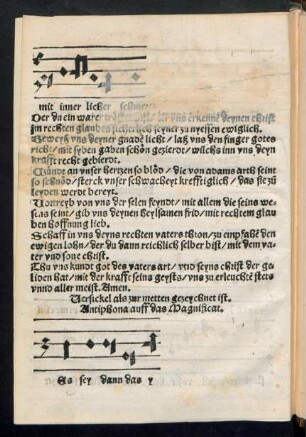 mit inner lieber
Der du ein warer tröster bist / ler vns erkenne deynen christ
im rechten glauben sicherlich seyner zu nyessen ewiglich.
Beweyß vns deyner gnade liecht / laß vns den finger gotes
richt / mit syben gaben schön gezierdt / wilchs inn vns deyn
krafft recht gebierdt.
Czünde an vnser hertzen so blöd / die von adams arth seint
so schnöd / sterck vnser schwacheyt krefftiglich / das sie zů
leyden werd bereyt.
Vortreyb von vns der selen feyndt / mit allem die seins we-
sens seint / gib vns deynen heylsamen frid / mit rechtem glau
ben hoffnung lieb.
Schaff in vns deyns rechten vaters thron / zu empfahē den
ewigen lohn / der du dann reichlich selber bist / mit dem va-
ter vnd sone christ.
Thu vns kundt got des vaters art / vnd seyns christ der ge-
boren hat / mit der krafft seins geysts / vns zu erleucht̄ stets
vnnd aller meist. Amen.
Versickel als zur metten gezeychnet ist.
Antiphona auff das Magnificat.
Es sey dann das y